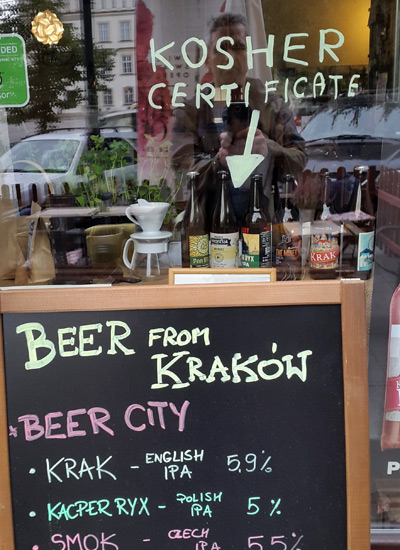 KOSHER
CERTIFICATE
BEER FROM
KRAKÓW
BEER CITY
• KRAK - ENGLISH IPA 5,9%
• KACPER RYX - POLISH IPA 5%
• SMOK - CZECH IPA 5,5%
KRAK
RYX